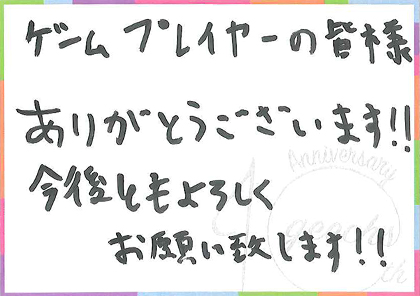 ゲームプレイヤーの皆様
ありがとうございます!!
今後ともよろしく
お願い致します!!
Anniversary
th